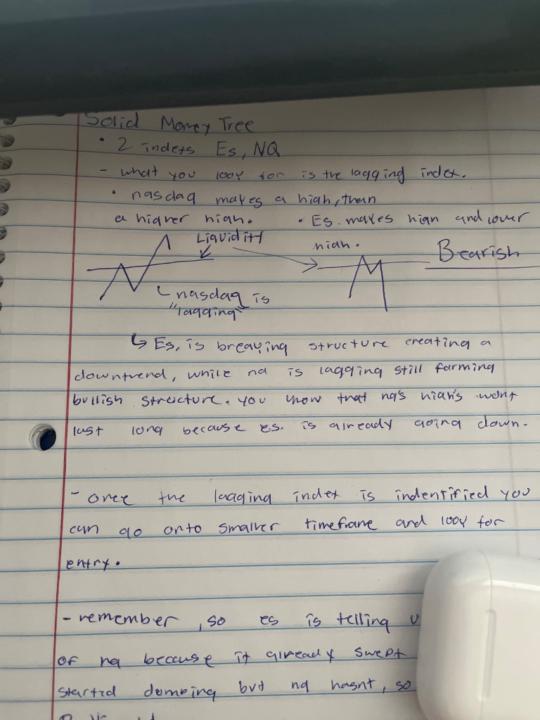 Solid Money Tree
• 2 indexs Es, NQ
- what you look for is the lagging index.
• nasdaq makes a high, than
a higher high.
• Es. makes high and lower
high.
Liquidity
Bearish
nasdaq is
"lagging"
Es, is breaking structure creating a
downtrend, while nq is lagging still farming
bullish structure. you know that nq's high's wont
last long because es. is already going down.
- once the lagging index is indentified you
can go onto smaller timeframe and look for
entry.
- remember, so es is telling
of nq because it already swept
started dumping but nq hasnt, so